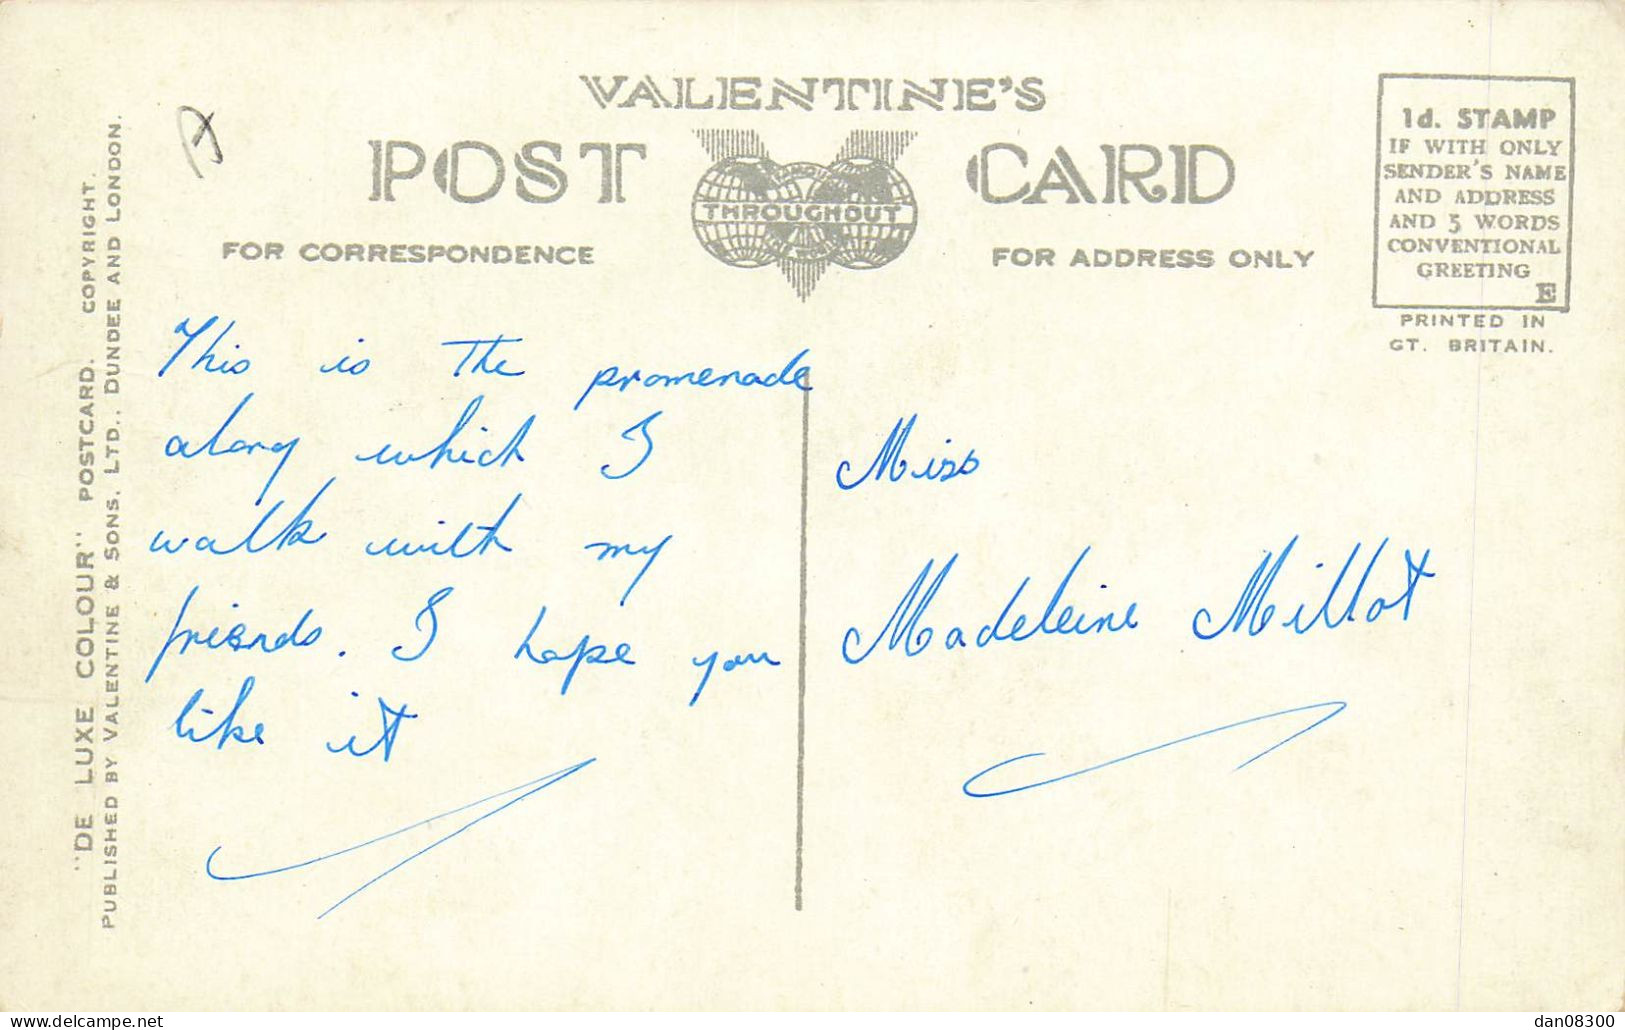 VALENTINE'S
POST CARD
THROUGHOUT
FOR CORRESPONDENCE
FOR ADDRESS ONLY
1d. STAMP
IF WITH ONLY
SENDER'S NAME
AND ADDRESS
AND 5 WORDS
CONVENTIONAL
GREETING
E
PRINTED IN
GT. BRITAIN.
"DE LUXE COLOUR" POSTCARD. COPYRIGHT.
PUBLISHED BY VALENTINE & SONS, LTD., DUNDEE AND LONDON.
This is the promenade
along which I
walk with my
friends. I hope you
like it
Miss
Madeleine Millot
dan08300